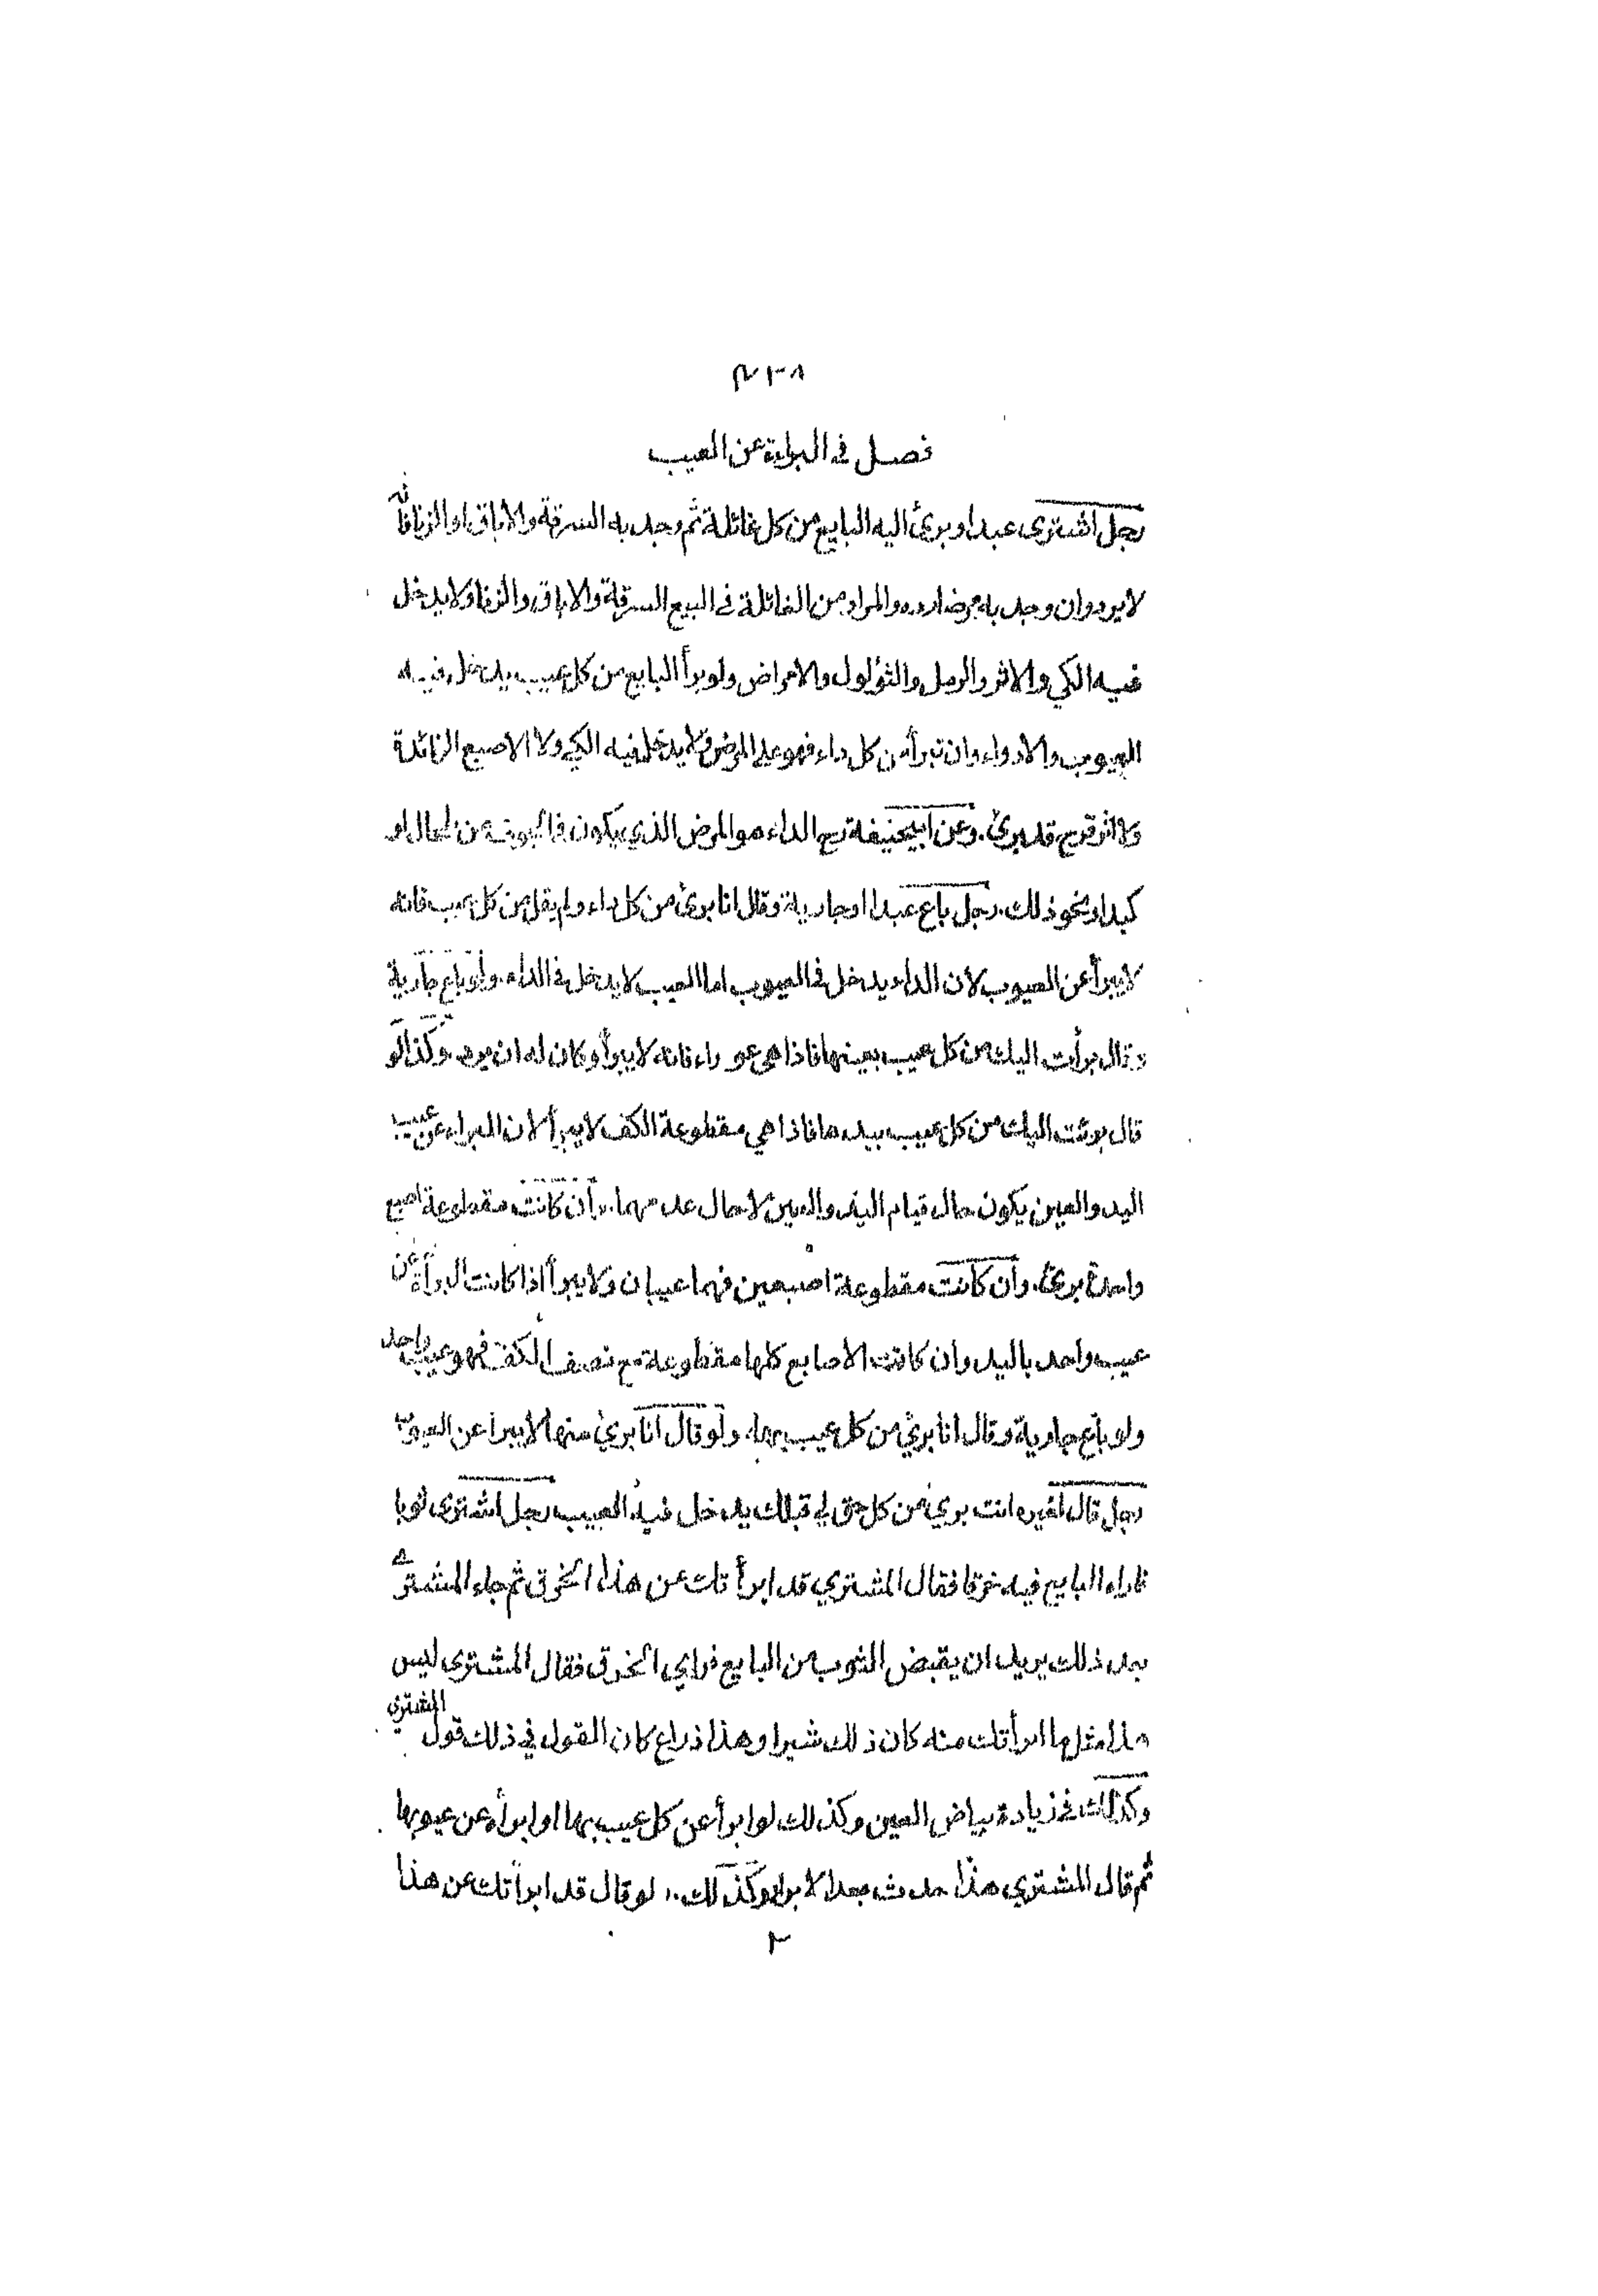 ٢٣٨
فصل في البراءة عن العيب
رجل اشترى عبدا وبرئ اليه البايع من كل غائلة ثم وجد به السرقة والاباق او الزنا فانه
لا يرد وان وجد به مرضا رده والمراد من الغائلة في البيع السرقة والاباق والزنا ولا يدخل
فيه الكي والاثر والرمل والثؤلول والامراض ولو برأ البايع من كل عيب يدخل فيه
العيوب والادواء وان تبرأ من كل داء فهو على المرض ولا يدخل فيه الكي ولا الاصبع الزائدة
ولا اثر قرح قد برئ. وعن ابيحنيفة رح الداء هو المرض الذي يكون في الجوف من طحال او
كبد او نحو ذلك. رجل باع عبدا او جارية وقال انا برئ من كل داء ولم يقل من كل عيب فانه
لا يبرأ عن العيوب لان الداء يدخل في العيوب اما العيب لا يدخل في الداء. ولو باع جارية
وقال برأت اليك من كل عيب بعينها فاذا هي عوراء فانه لا يبرأ وكان له ان يرد. وكذا لو
قال برئت اليك من كل عيب بيدها فاذا هي مقطوعة الكف لا يبرأ لان البراء عن عيب
اليد والعين يكون حال قيام اليد والعين لا حال عدمهما. وان كانت مقطوعة اصبع
واحدة برئ. وان كانت مقطوعة اصبعين فهما عيبان ولا يبرأ اذا كانت البرأة عن
عيب واحد باليد وان كانت الاصابع كلها مقطوعة مع نصف الكف فهو عيب واحد
ولو باع جارية وقال انا برئ من كل عيب بها. ولو قال انا برئ منها لا يبرأ عن العيوب
رجل قال لغيره انت برئ من كل حق لي قبلك يدخل فيه العيب رجل اشترى ثوبا
فاراه البايع فيه خرقا فقال المشتري قد ابرأتك عن هذا الخرق ثم جاء المشتري
بعد ذلك يريد ان يقبض الثوب من البايع فراى الخرق فقال المشترى ليس
هذا مثل ما ابرأتك منه كان ذلك شبرا وهذا ذراع كان القول في ذلك قول المشتري
وكذلك في زيادة بياض العين وكذلك لو ابرأ عن كل عيب بها او ابرأه عن عيوبها
ثم قال المشتري هذا حدث بعد الابراء وكذلك لو قال قد ابرأتك عن هذا
٢